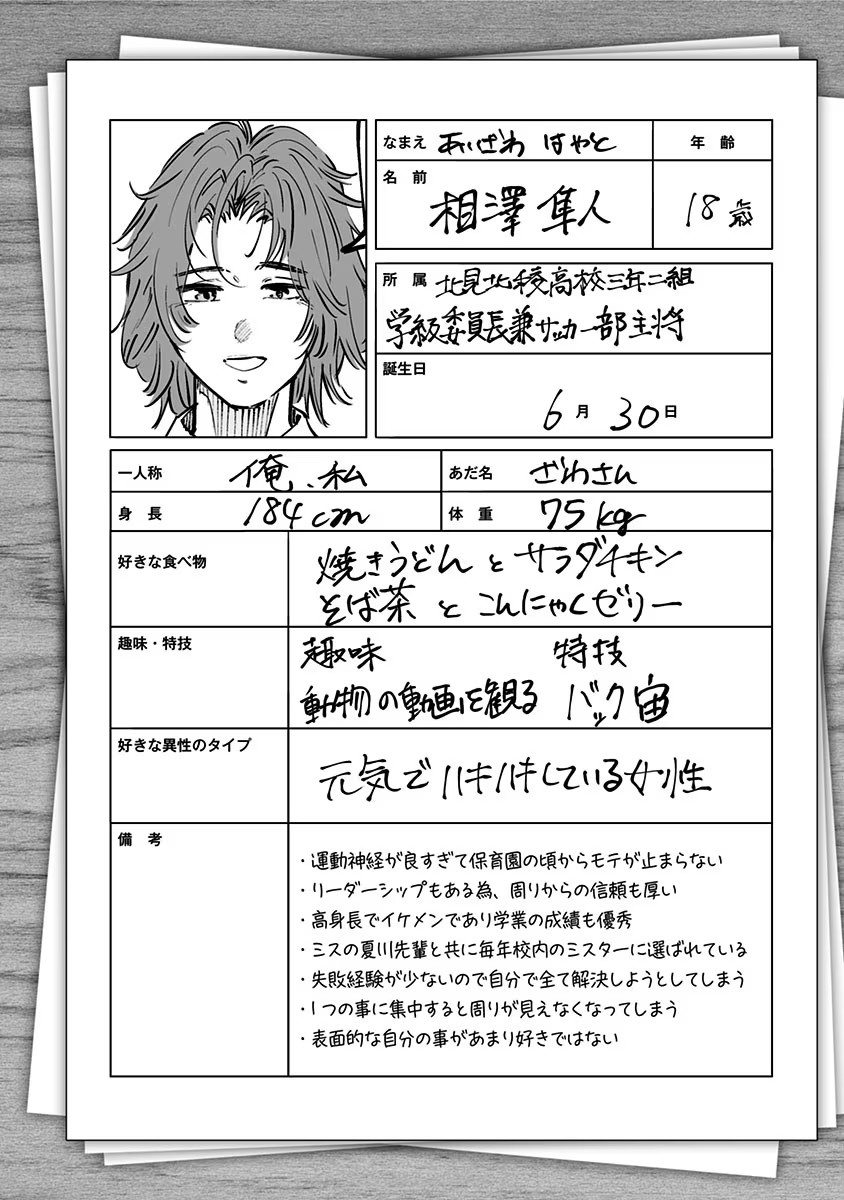 なまえ あいざわ はやと
年齢
名前 相澤 隼人
18歳
所属 北見北稜高校三年二組
学級委員長兼サッカー部主将
誕生日
6月30日
一人称 俺、私
あだ名 ざわさん
身長 184cm
体重 75kg
好きな食べ物 焼きうどんとサラダチキン
そば茶とこんにゃくゼリー
趣味・特技 趣味 特技
動物の動画を観る バック宙
好きな異性のタイプ 元気でハキハキしている女性
備考
・運動神経が良すぎて保育園の頃からモテが止まらない
・リーダーシップもある為、周りからの信頼も厚い
・高身長でイケメンであり学業の成績も優秀
・ミスの夏川先輩と共に毎年校内のミスターに選ばれている
・失敗経験が少ないので自分で全て解決しようとしてしまう
・1つの事に集中すると周りが見えなくなってしまう
・表面的な自分の事があまり好きではない